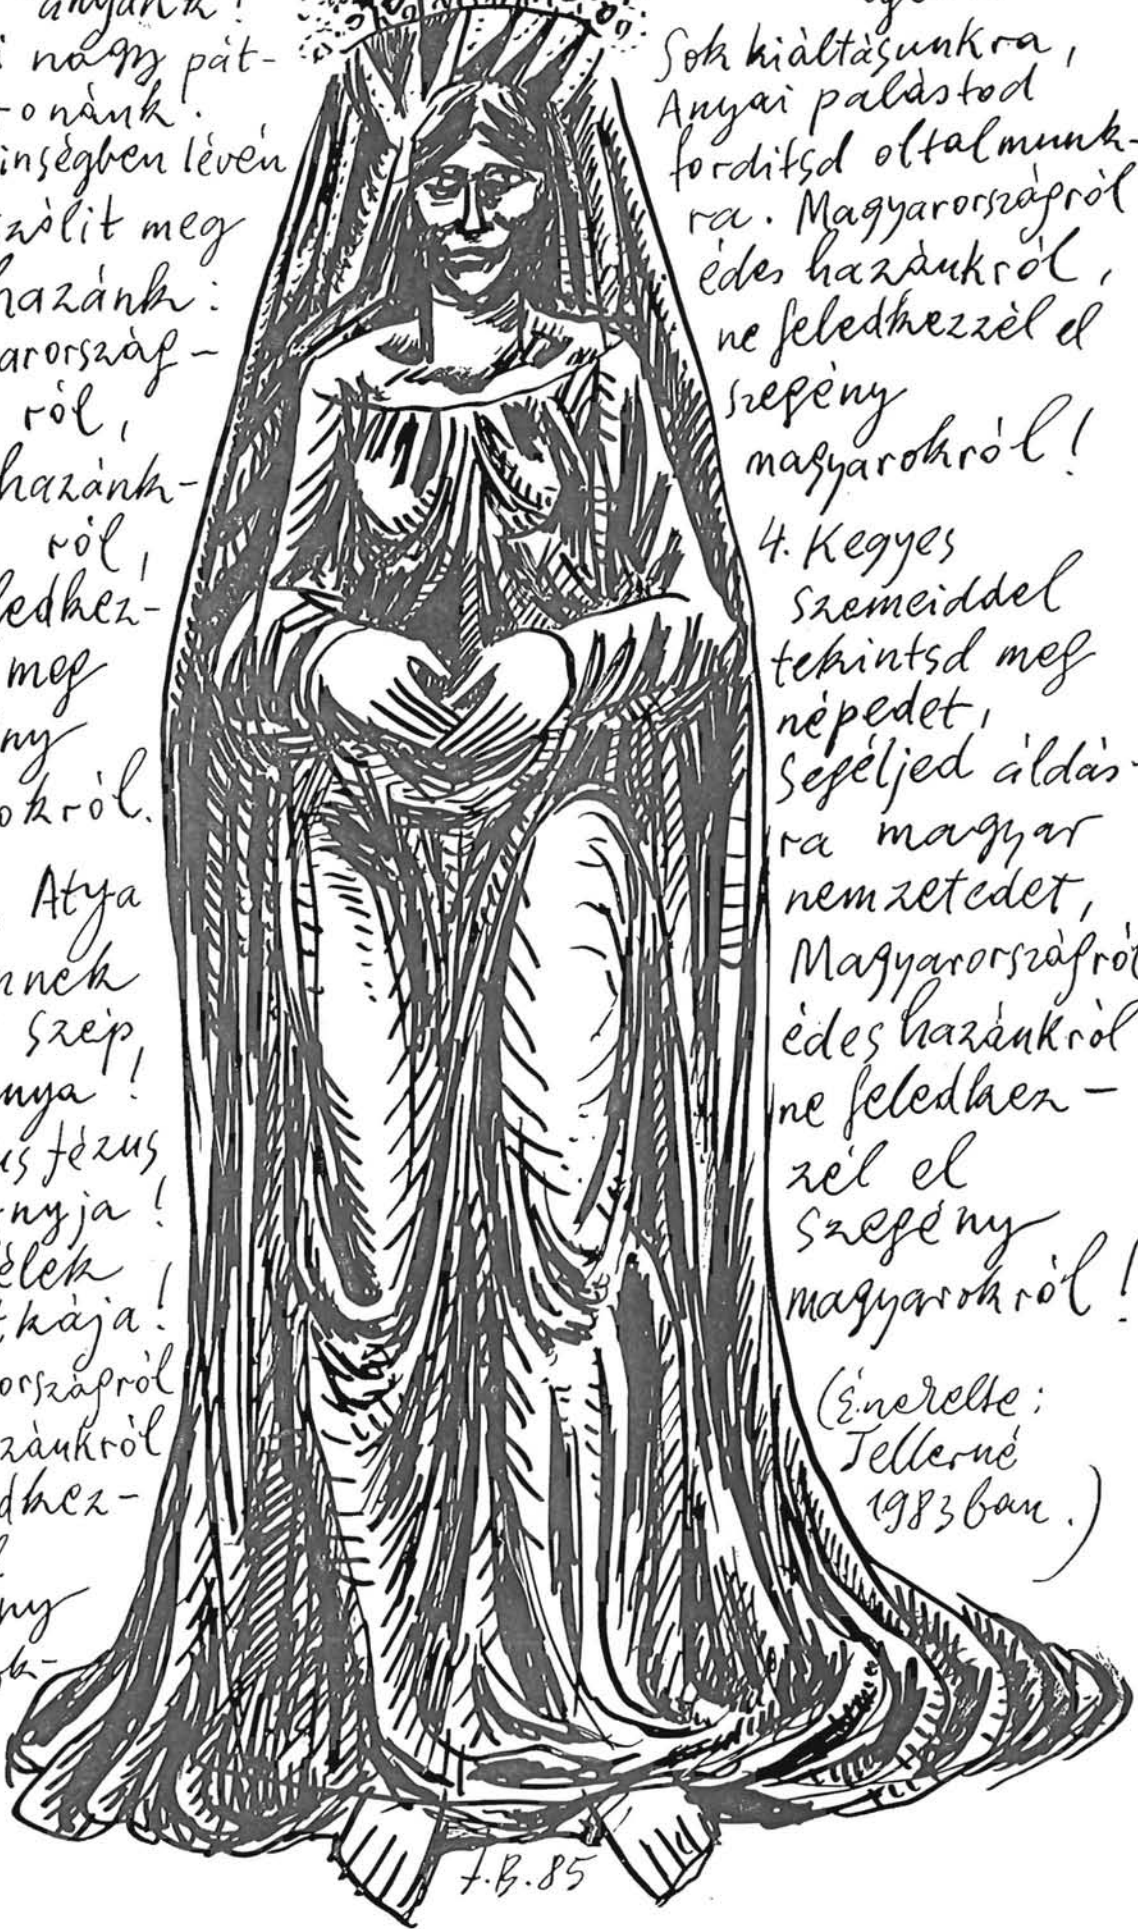 anyánk!
nagy pát-
ronánk.
inségben lévén
szólit meg
hazánk:
arország-
ról,
hazánk-
ról,
ledkez-
meg
ny
okról.
Atya
nnek
szép,
nya!
us Jézus
nyja!
élek
tkája!
országról
zánkról
dkez-
ny
ok-
Sok kiáltásunkra,
Anyai palástod
forditsd oltalmunk-
ra. Magyarországról
édes hazánkról,
ne feledkezzél el
szegény
magyarokról!
4. Kegyes
szemeiddel
tekintsd meg
népedet,
Segéljed áldás-
ra magyar
nemzetedet,
Magyarországról
édes hazánkról
ne feledkez-
zél el
szegény
magyarokról!
(Énekelte:
Tellerné
1983ban.)
J.B.85